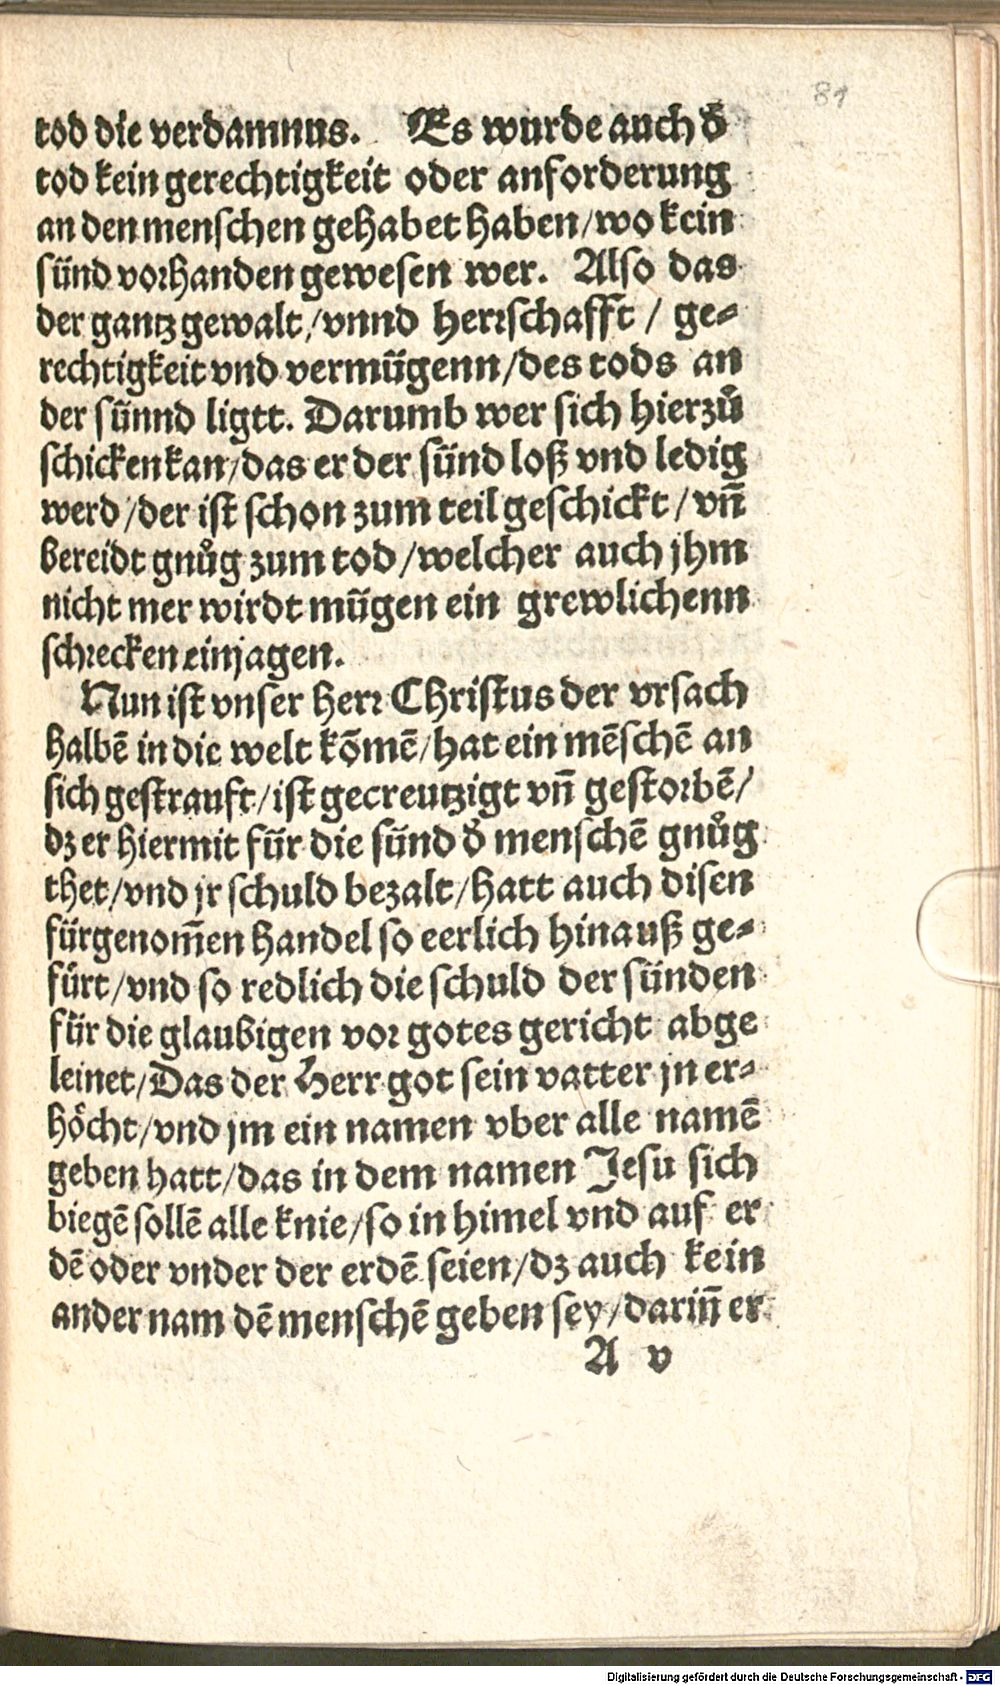 81
tod die verdamnus. Es wurde auch d̕
tod kein gerechtigkeit oder anforderung
an den menschen gehabet haben/wo kein
sünd vorhanden gewesen wer. Also das
der gantz gewalt/vnnd herrschafft / ge⸗
rechtigkeit vnd vermügenn/des tods an
der sünnd ligtt. Darumb wer sich hierzů
schicken kan/das er der sünd loß vnd ledig
werd/der ist schon zum teil geschickt/vñ
bereidt gnůg zum tod/welcher auch jhm
nicht mer wirdt mügen ein grewlichenn
schrecken einjagen.
Nun ist vnser Herr Christus der vrsach
halbē in die welt kōmē/hat ein mēschē an
sich gestrauft/ist gecreutzigt vñ gestorbē/
dz er hiermit für die sünd d̕ menschē gnůg
thet/vnd jr schuld bezalt/hatt auch disen
fürgenom̄en handel so eerlich hinauß ge⸗
fůrt/vnd so redlich die schuld der sünden
für die glaubigen vor gotes gericht abge
leinet/Das der Herr got sein vatter jn er⸗
höcht/vnd jm ein namen vber alle namē
geben hatt/das in dem namen Jesu sich
biegē sollē alle knie/so in himel vnd auf er
dē oder vnder der erdē seien/dz auch kein
ander nam dē menschē geben sey/dariñ er
A v
Digitalisierung gefördert durch die Deutsche Forschungsgemeinschaft - DFG